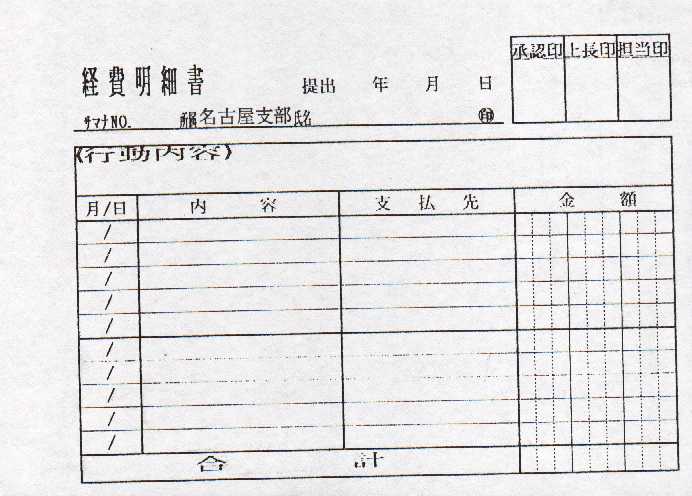 承認印 上長印 担当印
経費明細書 提出 年 月 日
ｻﾏﾅNO. 所属名古屋支部氏名 ㊞
《行動内容》
月/日 内 容 支 払 先 金 額
/
/
/
/
/
/
/
/
/
/
合 計